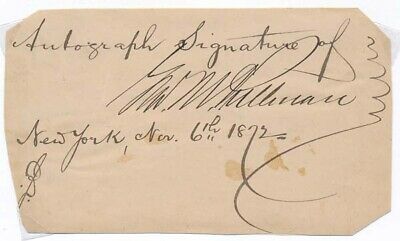 Autograph Signature of
Geo. M. Pullman
New York, Nov. 6th 1872